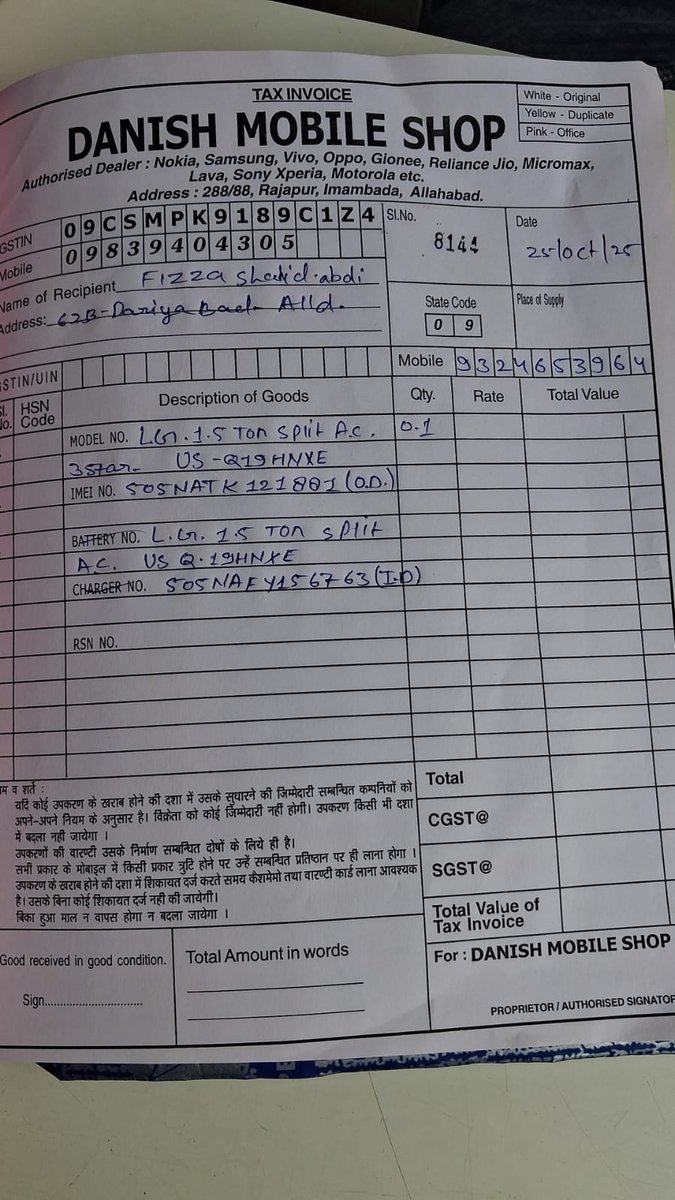 TAX INVOICE
White - Original
Yellow - Duplicate
Pink - Office
DANISH MOBILE SHOP
Authorised Dealer : Nokia, Samsung, Vivo, Oppo, Gionee, Reliance Jio, Micromax,
Lava, Sony Xperia, Motorola etc.
Address : 288/88, Rajapur, Imambada, Allahabad.
GSTIN 09CSMPK9189C1Z4
Mobile 09839404305
Sl.No. 8144
Date 25/Oct/25
Name of Recipient Fizza Shahid.abdi
Address: 62B-Dariya Bad- Alld.
State Code 09
Place of Supply
GSTIN/UIN
Mobile 9324653964
Sl. No. HSN Code Description of Goods Qty. Rate Total Value
MODEL NO. L.G. 1.5 Ton Split A.C. 0.1
3Star- US-Q19HNXE
IMEI NO. 505NATK121881 (O.D.)
BATTERY NO. L.G. 1.5 Ton split
A.C. US Q.19HNXE
CHARGER NO. 505NAEY156763 (I.D)
RSN NO.
व शर्ते :
यदि कोई उपकरण के खराब होने की दशा में उसके सुधारने की जिम्मेदारी सम्बन्धित कम्पनियों को
अपने-अपने नियम के अनुसार है। विक्रेता को कोई जिम्मेदारी नहीं होगी। उपकरण किसी भी दशा
में बदला नही जायेगा ।
उपकरणों की वारण्टी उसके निर्माण सम्बन्धित दोषों के लिये ही है।
सभी प्रकार के मोबाइल में किसी प्रकार त्रुटि होने पर उन्हें सम्बन्धित प्रतिष्ठान पर ही लाना होगा ।
उपकरण के खराब होने की दशा में शिकायत दर्ज करते समय कैशमेमो तथा वारण्टी कार्ड लाना आवश्यक
है। उसके बिना कोई शिकायत दर्ज नही की जायेगी।
बिका हुआ माल न वापस होगा न बदला जायेगा ।
Total
CGST@
SGST@
Total Value of
Tax Invoice
Good received in good condition.
Sign..............................
Total Amount in words
For : DANISH MOBILE SHOP
PROPRIETOR / AUTHORISED SIGNATOR